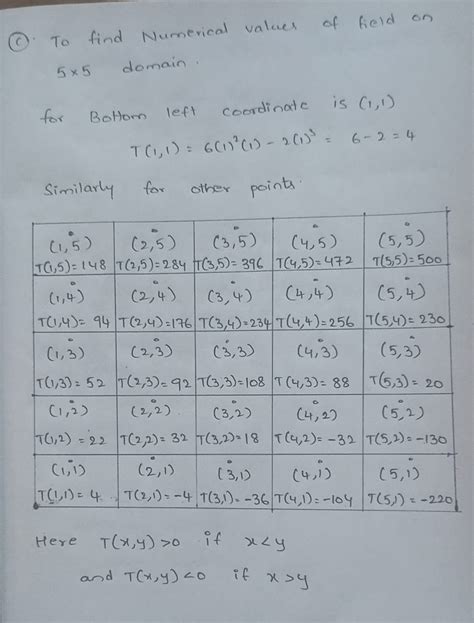 (c). To find Numerical values of field on
5x5 domain.
for Bottom left coordinate is (1,1)
T(1,1) = 6(1)²(1) - 2(1)³ = 6-2 = 4
Similarly for other points.
(1,5) (2,5) (3,5) (4,5) (5,5)
T(1,5)=148 T(2,5)=284 T(3,5)=396 T(4,5)=472 T(5,5)=500
(1,4) (2,4) (3,4) (4,4) (5,4)
T(1,4)=94 T(2,4)=176 T(3,4)=234 T(4,4)=256 T(5,4)=230
(1,3) (2,3) (3,3) (4,3) (5,3)
T(1,3)=52 T(2,3)=92 T(3,3)=108 T(4,3)=88 T(5,3)=20
(1,2) (2,2) (3,2) (4,2) (5,2)
T(1,2)=22 T(2,2)=32 T(3,2)=18 T(4,2)=-32 T(5,2)=-130
(1,1) (2,1) (3,1) (4,1) (5,1)
T(1,1)=4 T(2,1)=-4 T(3,1)=-36 T(4,1)=-104 T(5,1)=-220
Here T(x,y)>0 if x<y
and T(x,y)<0 if x>y